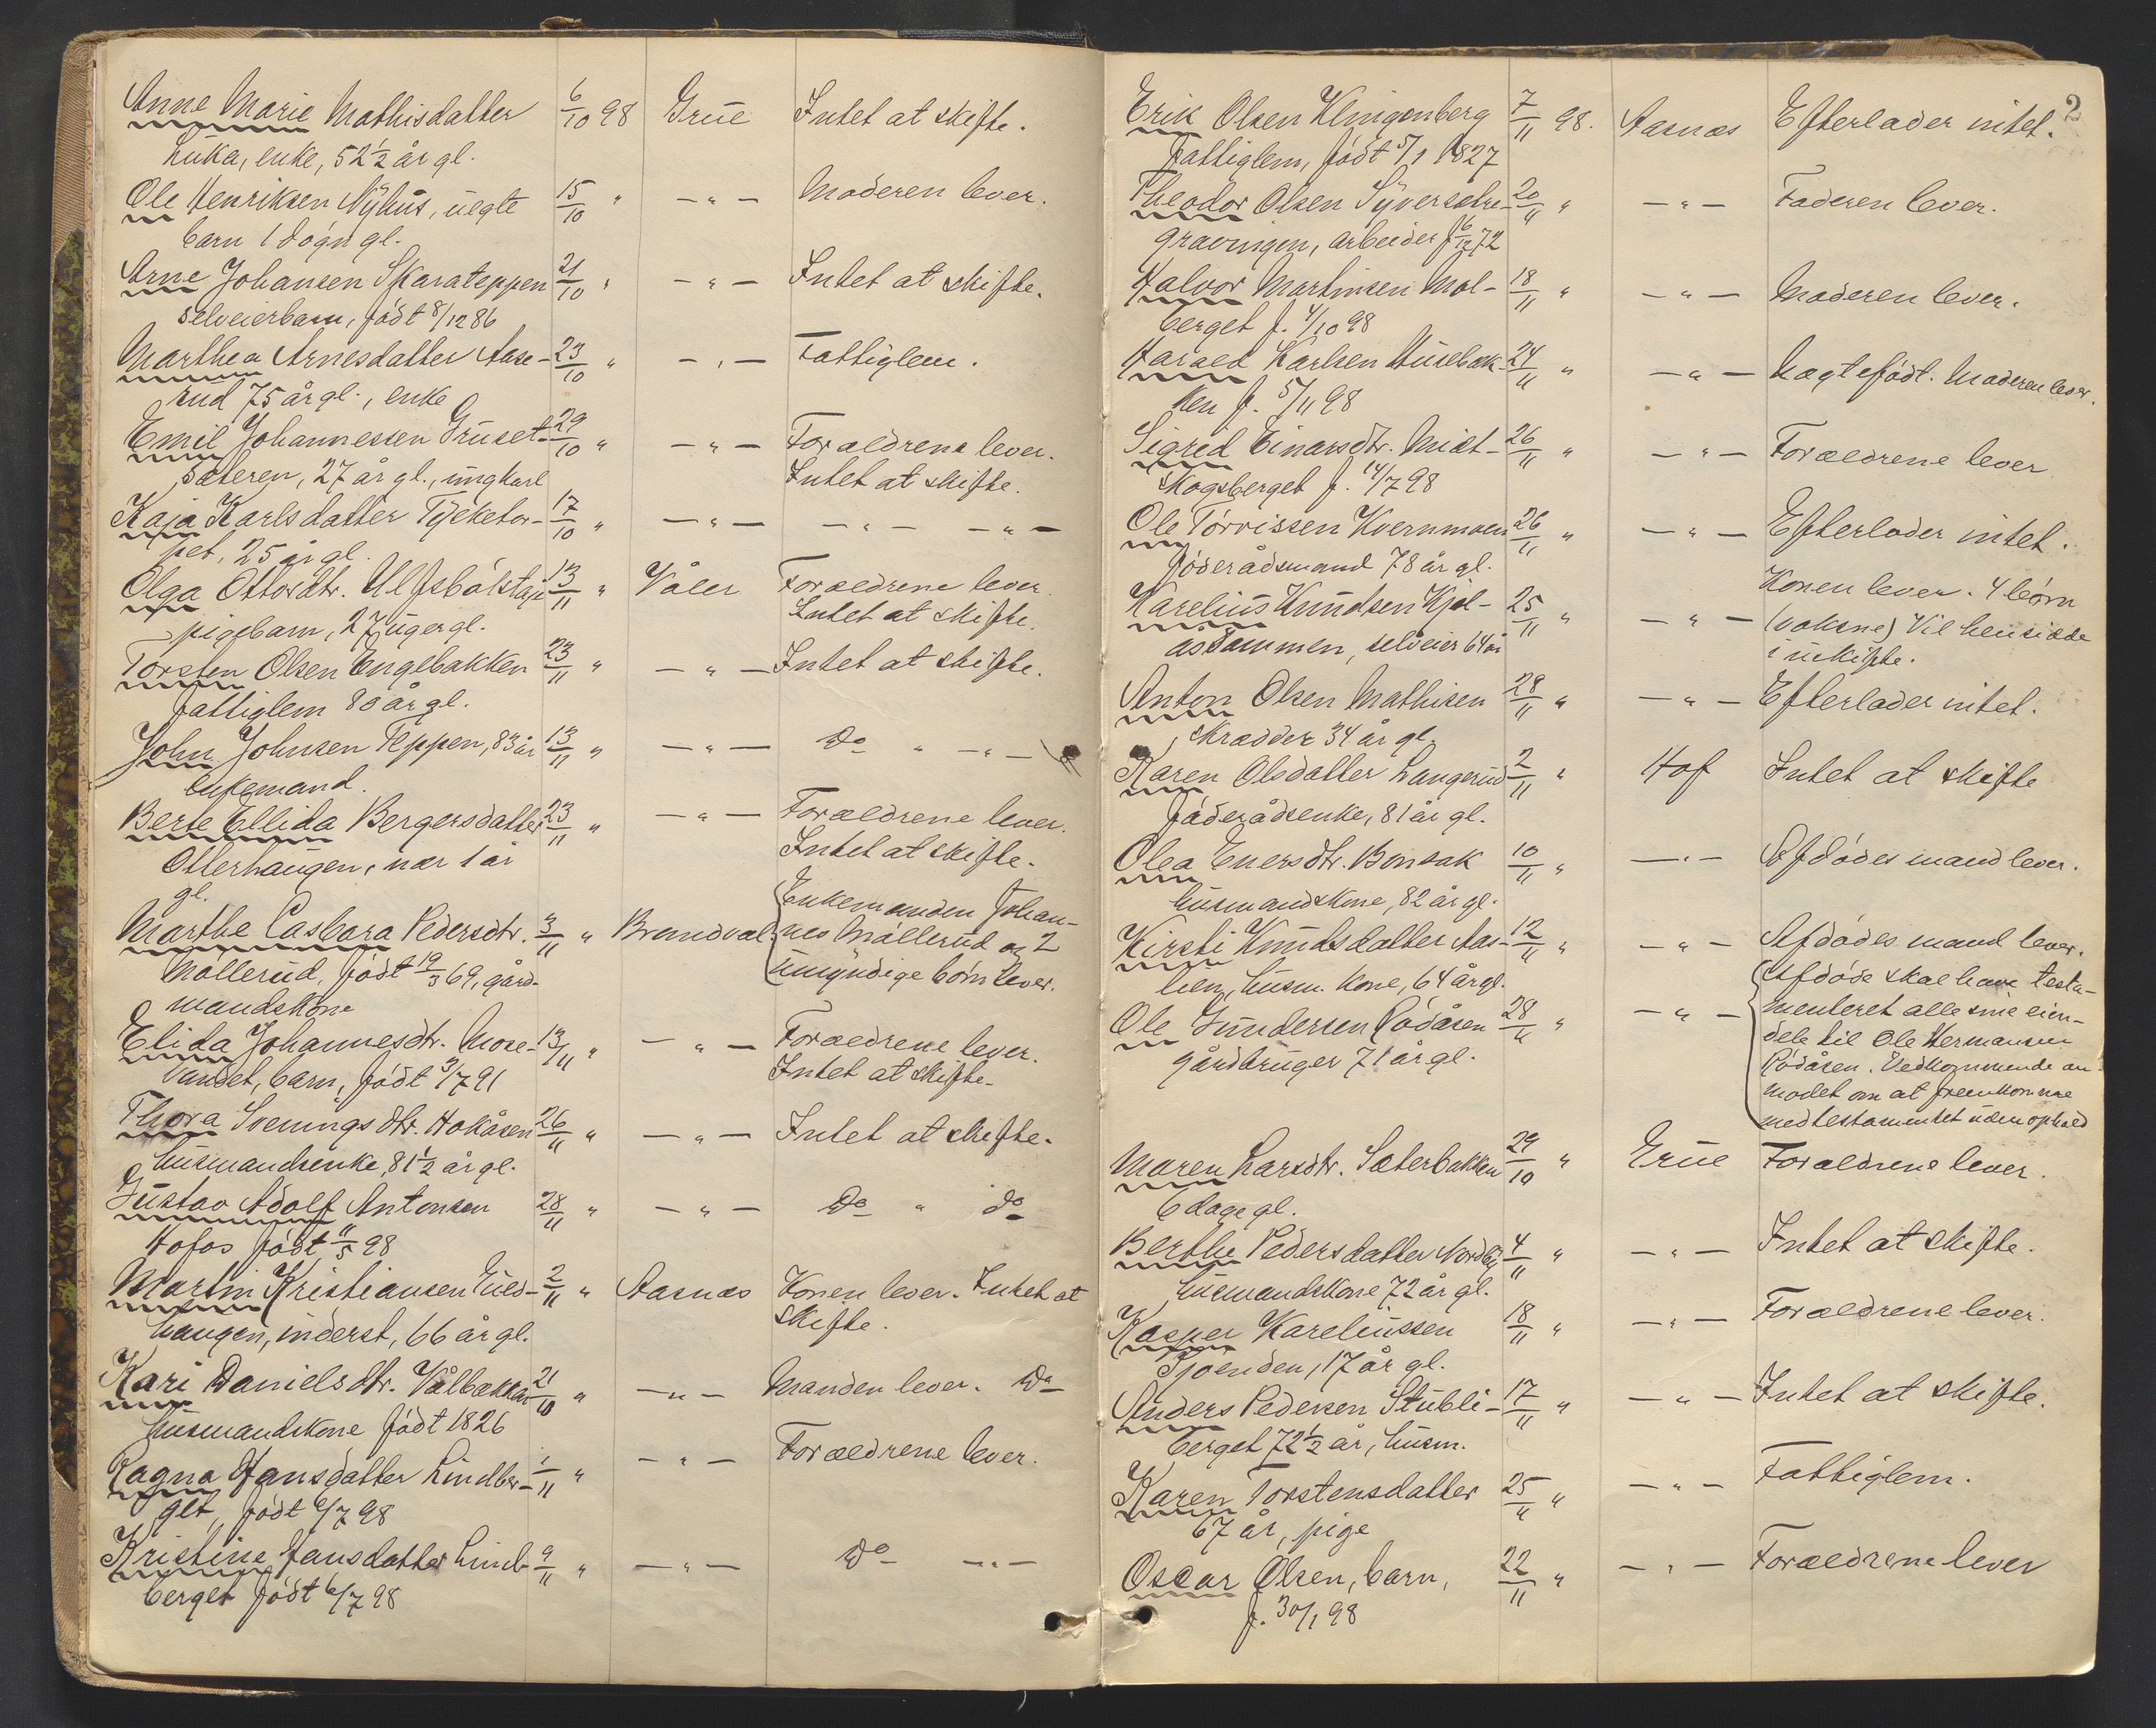 Anne Marie Mathisdatter 6/10 98 Grue Intet at skifte.
Luka, enke, 52 1/2 år gl.
Ole Henriksen Nyhus, uegte 15/10 " — " — Moderen lever.
barn 1 døgn gl.
Arne Johansen Skarateppen 21/10 " — " — Intet at skifte.
selveierbarn, født 8/12 86
Marthea Arnesdatter Aase- 23/10 " — " — Fattiglem.
rud 75 år gl., enke
Emil Johannessen Gruset- 29/10 " — " — Forældrene lever.
sæteren, 27 år gl., ungkarl Intet at skifte.
Kaja Karlsdatter Tysketor- 17/10 " — " — — " — — " —
pet, 25 år gl.
Olga Ottersdtr. Ulfsbølstap 13/11 " Våler Forældrene lever
pigebarn, 27 uger gl. Intet at skifte.
Torsten Olsen Englbakken 23/11 " — " — Intet at skifte.
fattiglem 80 år gl.
John Johnsen Teppen, 83 år 13/11 " — " — Do " — " —
enkemand.
Berte Ellida Bergersdatter 23/11 " — " — Forældrene lever.
Otterhaugen, nær 1 år Intet at skifte.
gl.
Marthe Casbara Pedersdtr. 3/11 " Brandval Enkemanden Johan-
Møllerud, født 19/3 69, gård- nes Møllerud og 2
mandskone umyndige børn lever.
Elida Johannesdtr. Mose- 13/11 " — " — Forældrene lever.
vandet, barn, født 3/7 91 Intet at skifte.
Thora Sveningsdtr. Hokåsen 26/11 " — " — Intet at skifte.
husmandsenke, 81 1/2 år gl.
Gustav Adolf Antonsen 28/11 " — " — Do " do
Hofos født 11/5 98
Martin Kristiansen Gues- 2/11 " Aasnæs Konen lever. Intet at
haugen, inderst, 66 år gl. skifte.
Kari Danielsdtr. Vålbakken 21/10 " — " — Manden lever. Do
husmandskone født 1826
Ragna Hansdatter Lindber- 1/11 " — " — Forældrene lever.
get, født 6/7 98
Kristine Hansdatter Lind- 9/11 " — " — Do — " —
berget født 6/7 98
2
Erik Olsen Klingenberg 7/11 98. Aasnæs Efterlader intet.
Fattiglem, født 5/1 1827
Theodor Olsen Syversætre- 20/11 " — " — Faderen lever.
gravingen, arbeider f 6/12 72
Halvor Martinsen Mol- 18/11 " — " — Moderen lever.
berget f. 4/10 98
Harald Karlsen Husebak- 24/11 " — " — Uægtefødt. Moderen lever.
ken f. 5/11 98
Sigrid Einarsdtr. Midt- 26/11 " — " — Forældrene lever
skogsberget f. 14/7 98
Ole Tørrissen Kvernmoen 26/11 " — " — Efterlader intet.
føderådsmand 78 år gl.
Karelius Knudsen Kjøl- 25/11 " — " — Konen lever. 4 børn
åsdammen, selveier 64 år (voksne) Vil hensidde
i uskifte.
Anton Olsen Mathisen 28/11 " — " — Efterlader intet.
skrædder 34 år gl.
Karen Olsdatter Langerud 2/11 " Hof Intet at skifte
føderådsenke, 81 år gl.
Olea Enersdtr. Bonsak 10/11 " — " — Afdødes mand lever.
husmandskone, 82 år gl.
Kirsti Knudsdatter Aas- 12/11 " — " — Afdødes mand lever.
lien, husm. kone, 64 år gl.
Ole Gundersen Rødåsen 28/11 " — " — Afdøde skal have testa-
gårdbruger 71 år gl. menteret alle sine eien-
dele til Ole Hermansen
Rødåsen. Vedkommende an-
modet om at fremkomme
med testamentet uden ophold
Maren Larsdtr. Sæterbakken 29/10 " Grue Forældrene lever.
6 dage gl.
Berthe Pedersdatter Nordby 4/11 " — " — Intet at skifte.
husmandskone 72 år gl.
Kasper Kareliussen 18/11 " — " — Forældrene lever.
Sjøenden, 17 år gl.
Anders Pedersen Stubli- 17/11 " — " — Intet at skifte.
berget 72 1/2 år, husm.
Karen Torstensdatter 25/11 " — " — Fattiglem.
67 år, pige
Oscar Olsen, barn, 22/11 " — " — Forældrene lever
f. 30/1 98